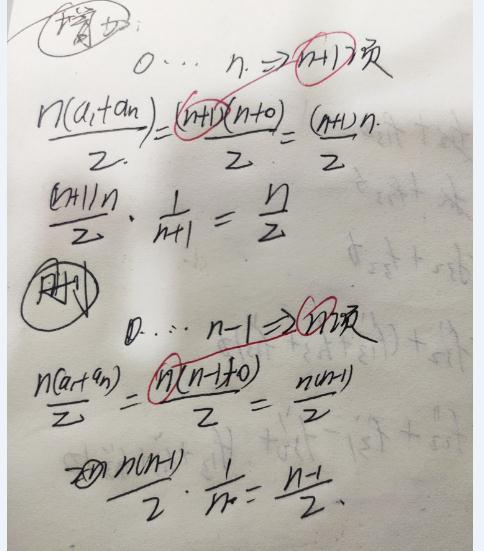 增加:
0 ... n. ⇒ n+1项
n(a₁+aₙ)/2. = (n+1)(n+0)/2 = (n+1)n./2
(n+1)n/2 · 1/(n+1) = n/2
删
0 .... n-1 ⇒ n项
n(a₁+aₙ)/2 = n(n-1+0)/2 = n(n-1)/2
n(n-1)/2 · 1/n. = (n-1)/2.